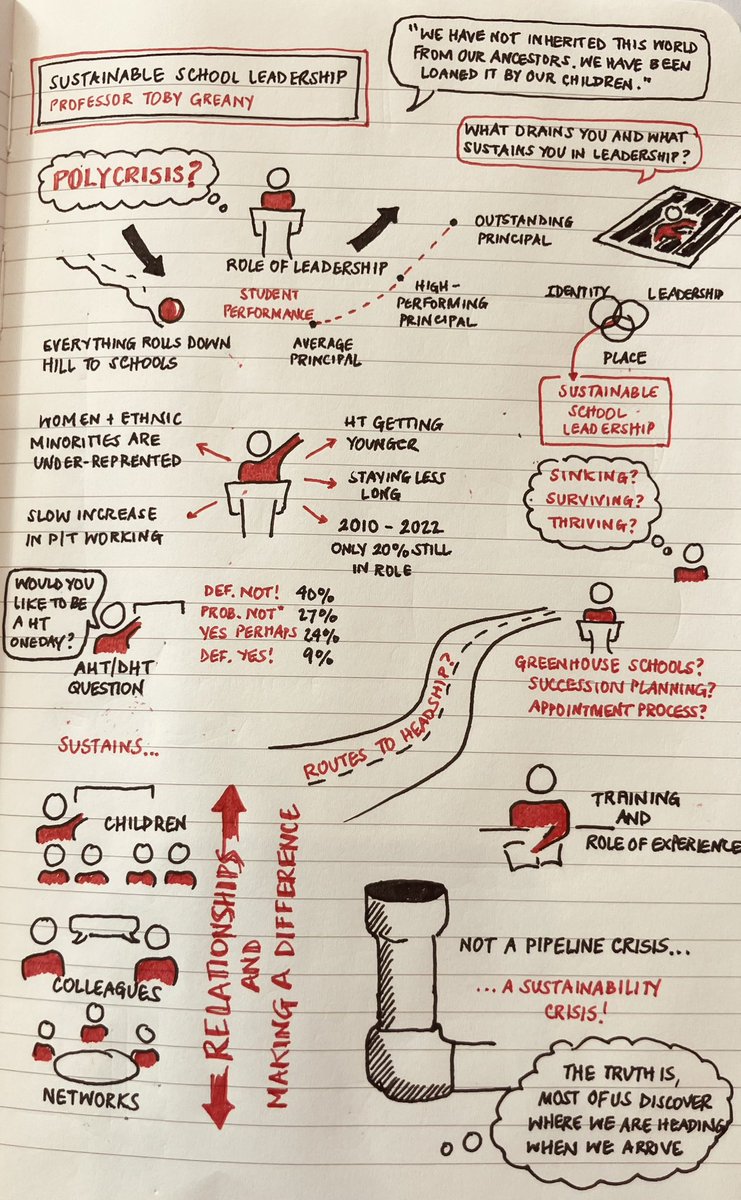 SUSTAINABLE SCHOOL LEADERSHIP
PROFESSOR TOBY GREANY
"WE HAVE NOT INHERITED THIS WORLD
FROM OUR ANCESTORS. WE HAVE BEEN
LOANED IT BY OUR CHILDREN."
WHAT DRAINS YOU AND WHAT
SUSTAINS YOU IN LEADERSHIP?
POLYCRISIS?
ROLE OF LEADERSHIP
EVERYTHING ROLLS DOWN
HILL TO SCHOOLS
STUDENT
PERFORMANCE
AVERAGE
PRINCIPAL
HIGH-
PERFORMING
PRINCIPAL
OUTSTANDING
PRINCIPAL
IDENTITY
LEADERSHIP
PLACE
SUSTAINABLE
SCHOOL
LEADERSHIP
WOMEN + ETHNIC
MINORITIES ARE
UNDER-REPRENTED
SLOW INCREASE
IN P/T WORKING
HT GETTING
YOUNGER
STAYING LESS
LONG
2010 - 2022
ONLY 20% STILL
IN ROLE
SINKING?
SURVIVING?
THRIVING?
WOULD YOU
LIKE TO BE
A HT
ONEDAY?
AHT/DHT
QUESTION
DEF. NOT! 40%
PROB. NOT" 27%
YES PERHAPS 24%
DEF. YES! 9%
ROUTES TO HEADSHIP?
GREENHOUSE SCHOOLS?
SUCCESSION PLANNING?
APPOINTMENT PROCESS?
SUSTAINS...
CHILDREN
COLLEAGUES
NETWORKS
RELATIONSHIPS
AND
MAKING A DIFFERENCE
TRAINING
AND
ROLE OF EXPERIENCE
NOT A PIPELINE CRISIS...
...A SUSTAINABILITY
CRISIS!
THE TRUTH IS,
MOST OF US DISCOVER
WHERE WE ARE HEADING
WHEN WE ARRIVE